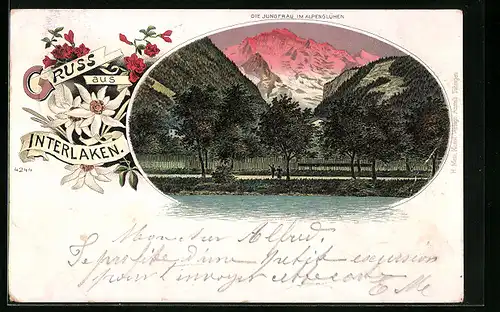 DIE JUNGFRAU IM ALPENGLÜHEN
GRUSS
aus
INTERLAKEN.
4244
Monsieur Alfred.
Je profite d'une petit excursion
pour l'envoyer cette carte
E Me